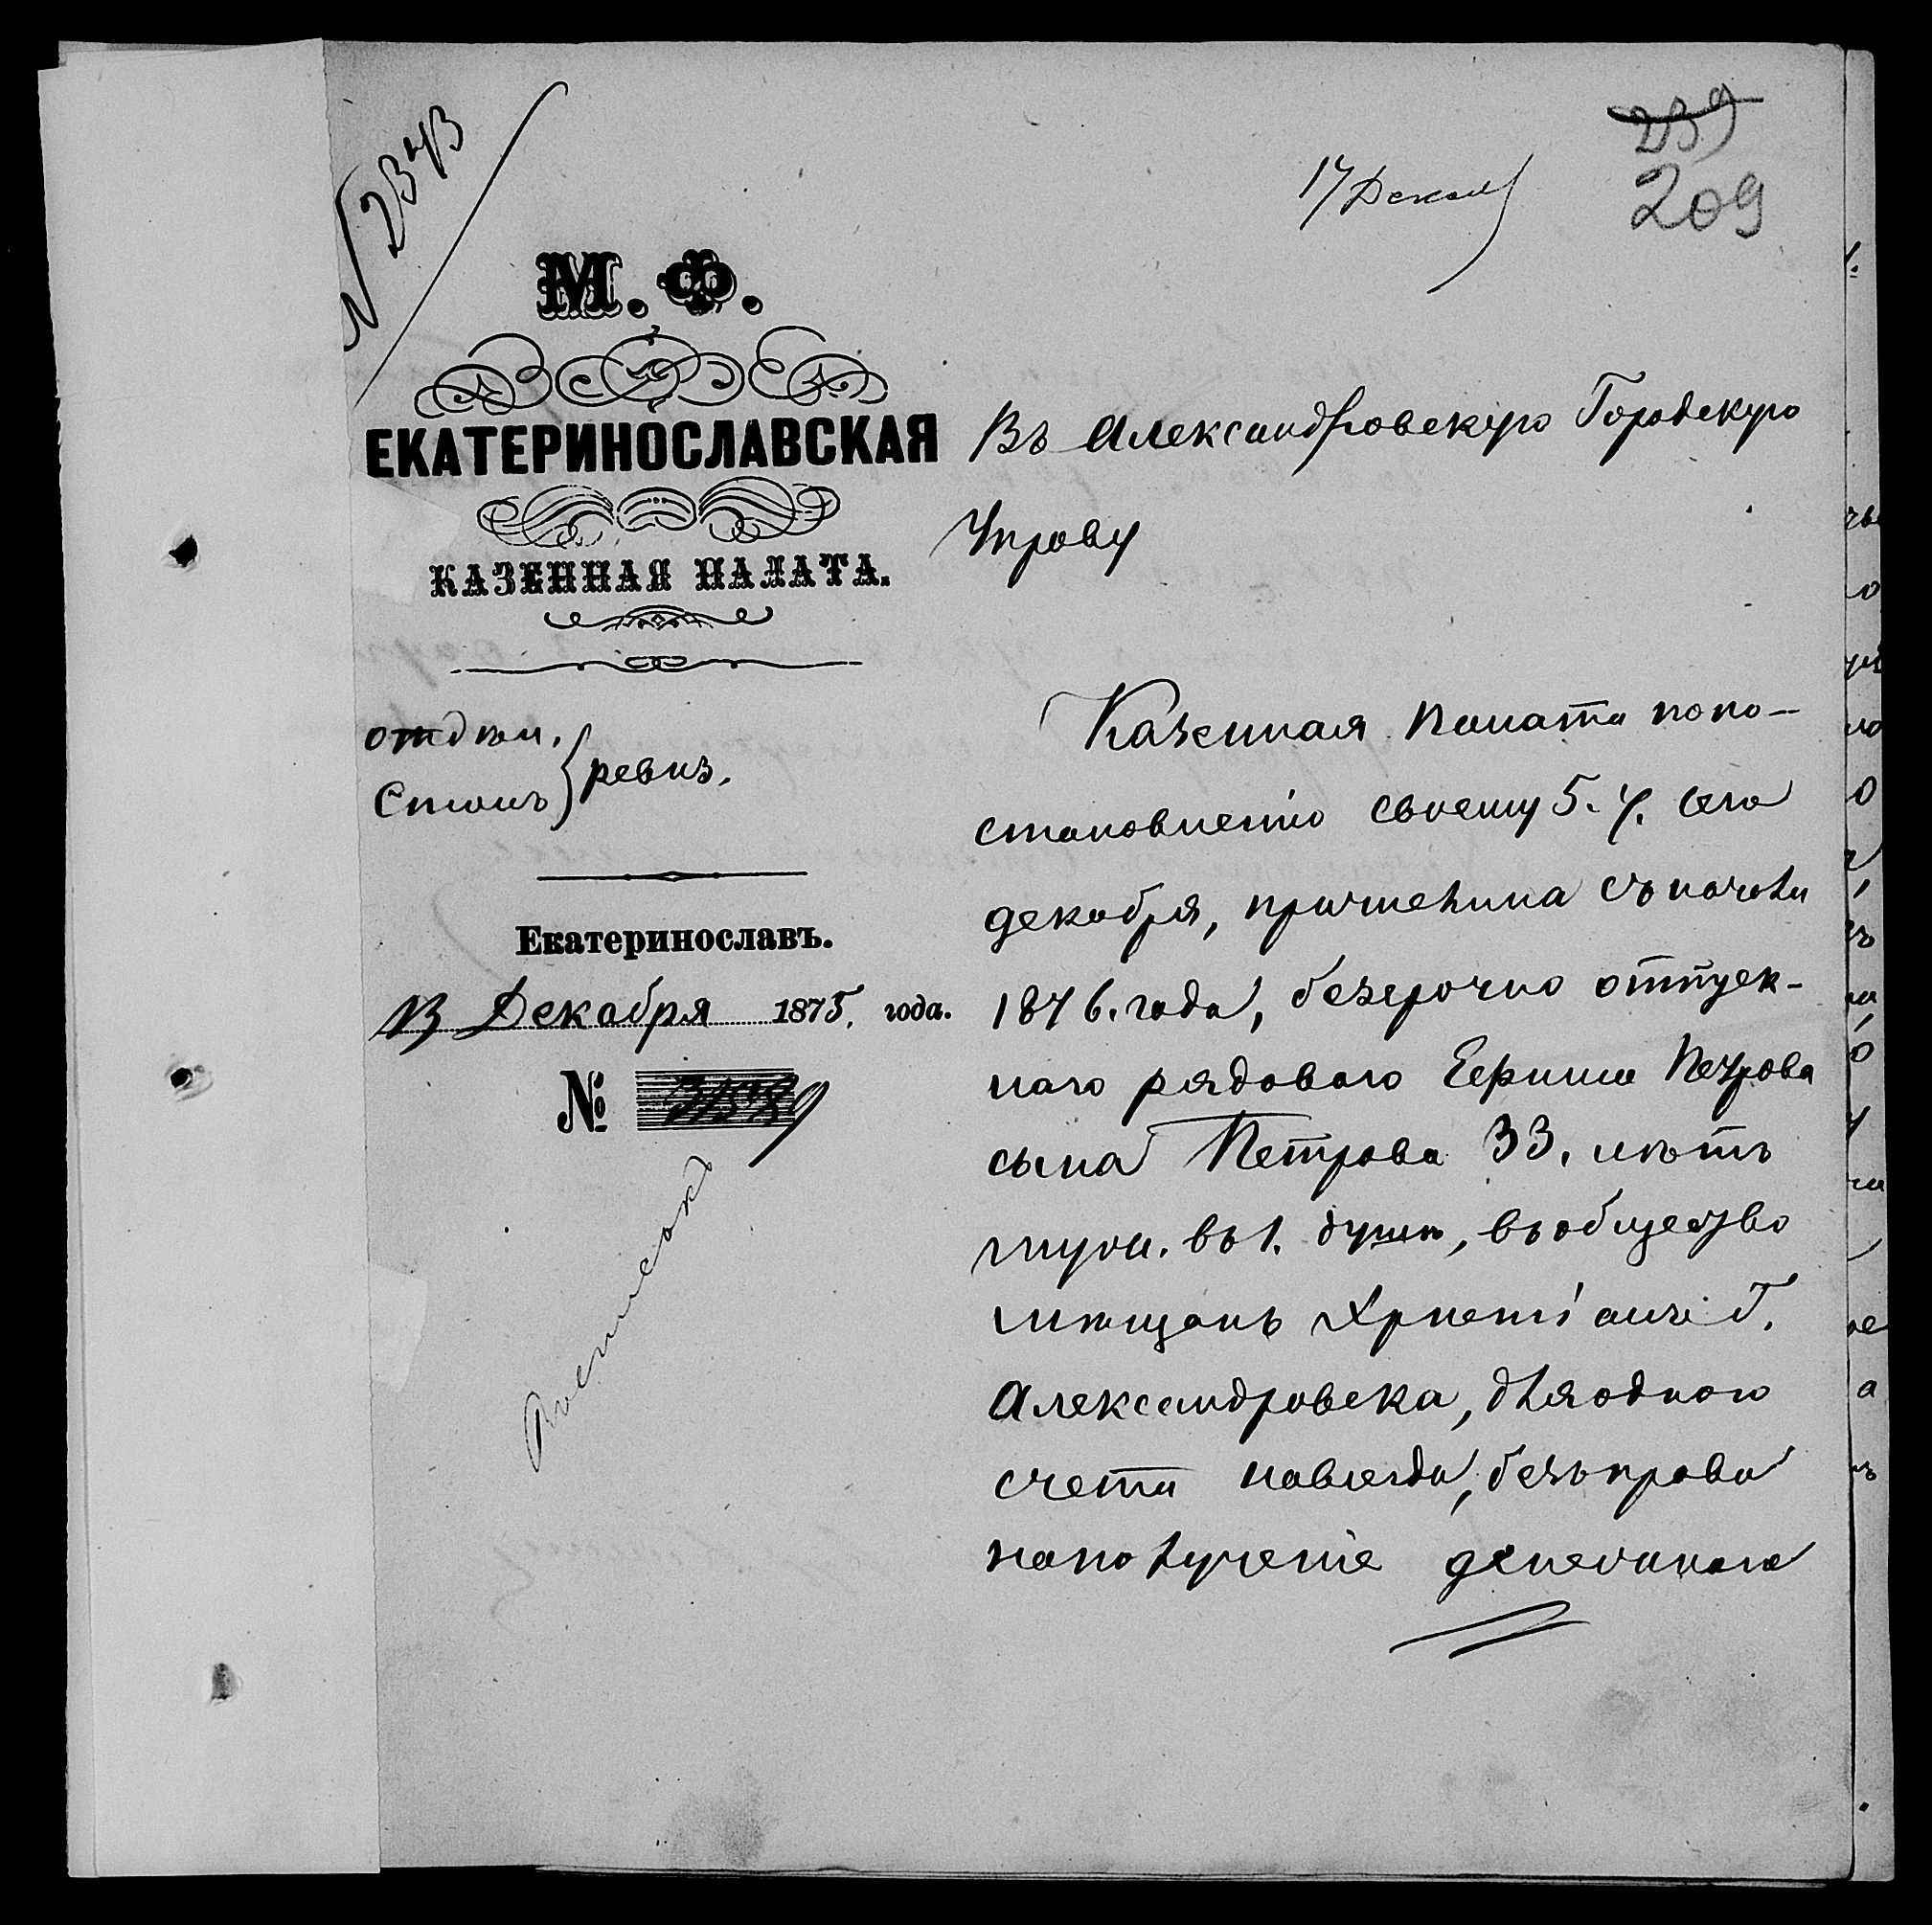 239
209
17 Декаб
№ 2343
М. Ф.
ЕКАТЕРИНОСЛАВСКАЯ
КАЗЕННАЯ ПАЛАТА.
отдѣл.
Столъ
ревиз.
Екатеринославъ.
13 Декабря 1875. года.
№ 31589
Въ Александровскую Городскую
Управу
Казенная Палата по по-
становленію своему 5. ч. сего
декабря, причислила съ почови
1876. года, безсрочно отпуск-
наго рядоваго Ефима Петрова
сына Петрова 33. лѣтъ
муж. въ 1. душѣ, въ общество
мѣщанъ Христіанъ г.
Александровска, для одного
счета навсегда, безъ права
на полученіе денежнаго